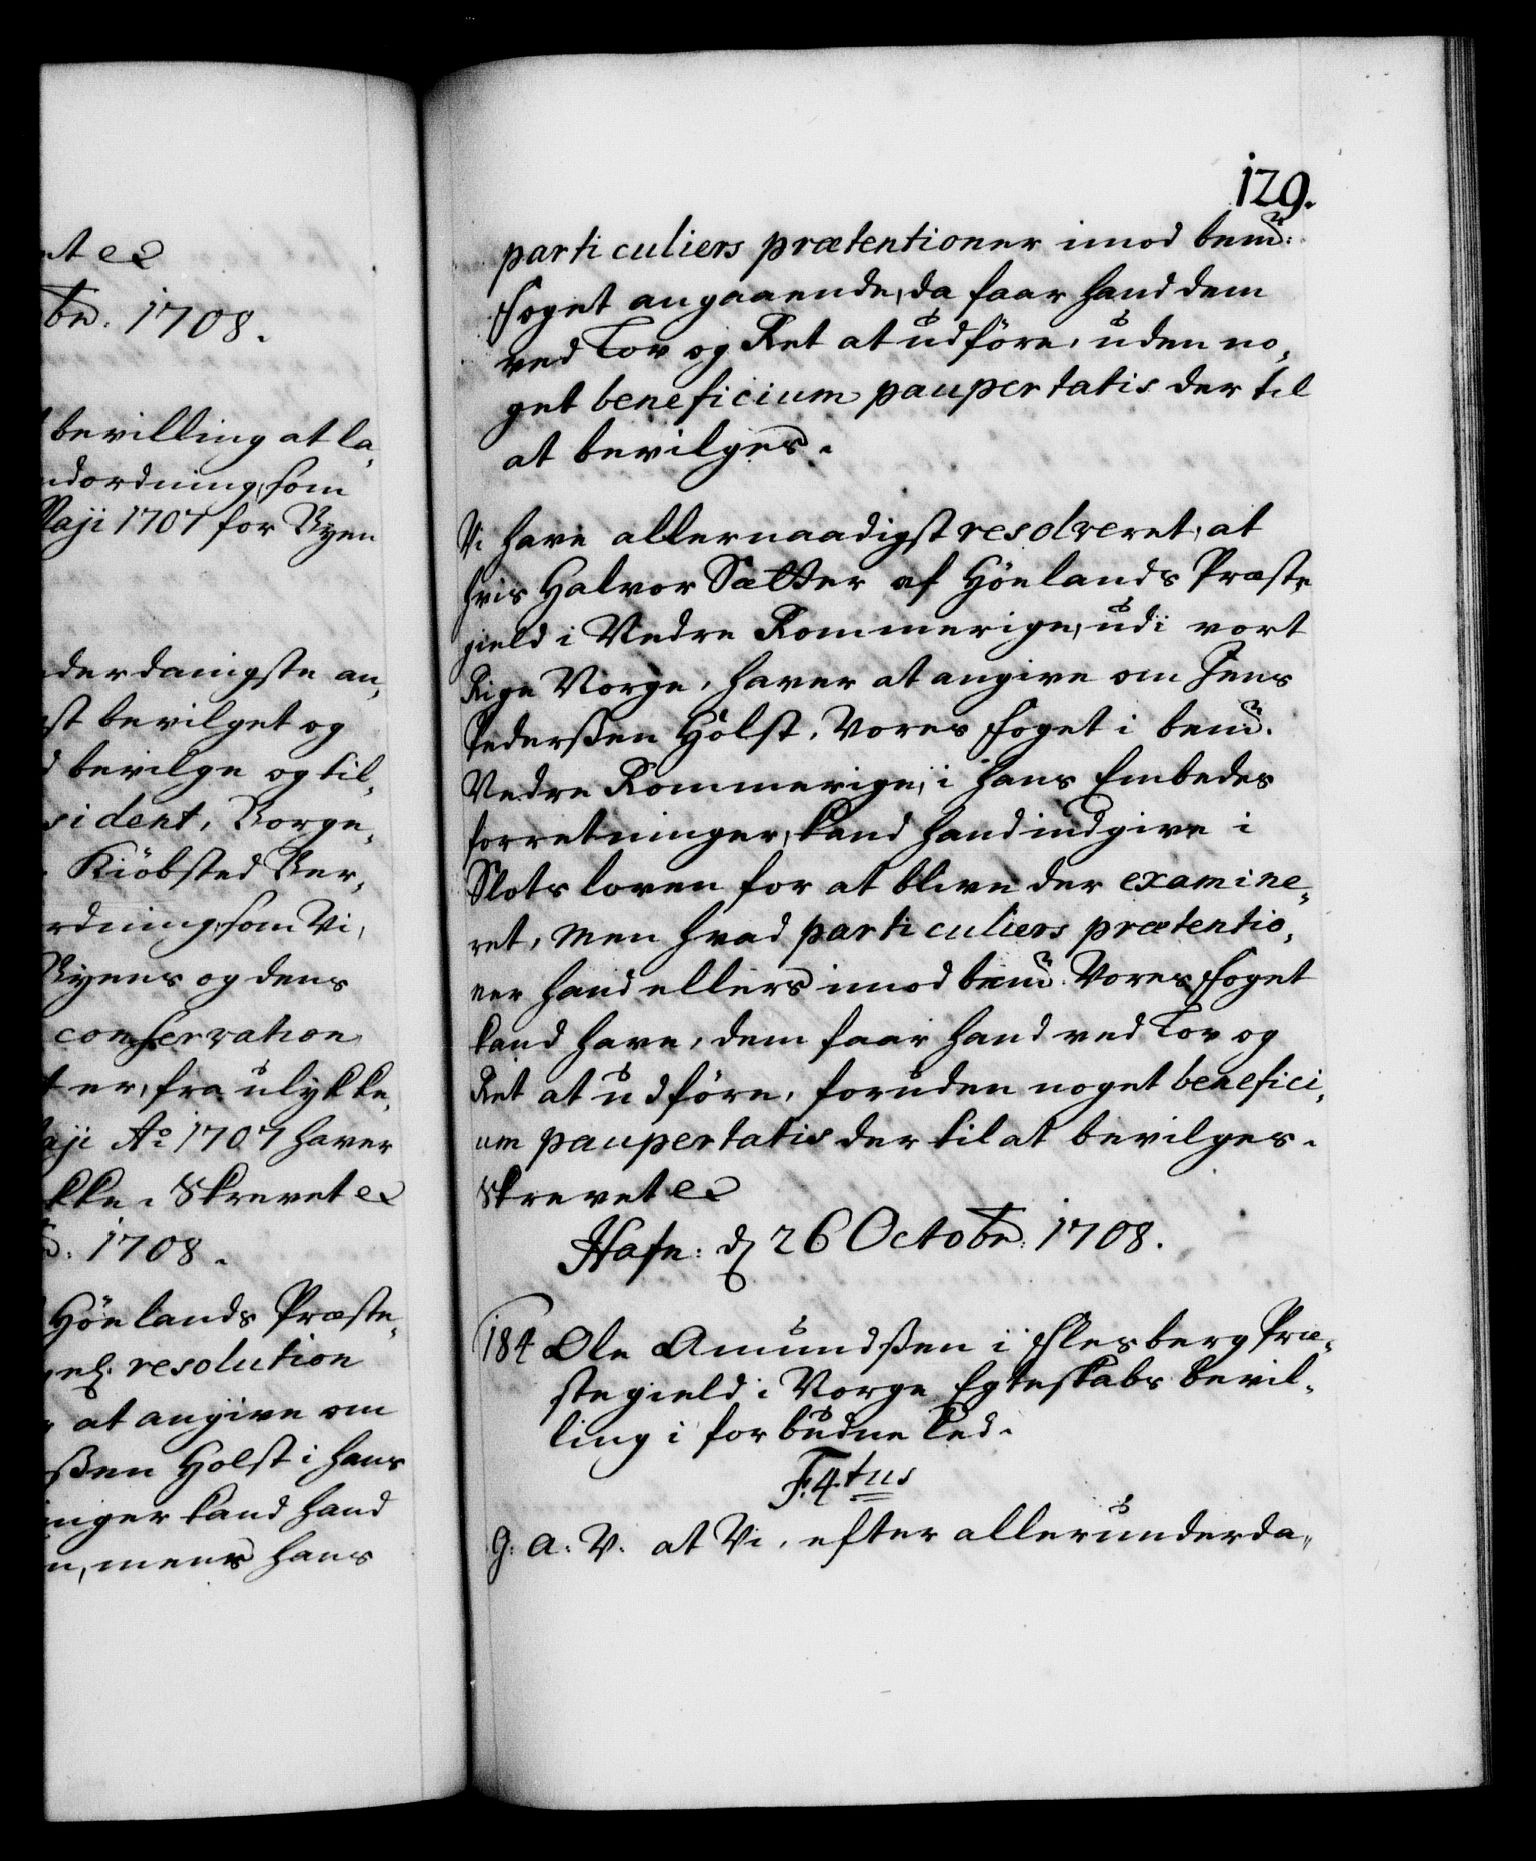 et etc
br. 1708.
bevilling at la„
ndordning, som
Maji 1707 for Byen
derdanigste an„
st bevilget og
d bevilge og til„
sident, Borge„
Kiöbsted Ber„
rdning, som Vi,
Byens og dens
conservation
ter, fra ulykke„
Maji Ao 1707 haver
kke. Skrevet etc
1708.
Hölands Præste„
gel. resolution
at angive om
ßen Holst i hans
inger kand hand
n, mens hans
129.
particuliers prætentioner imod bemte:
Foget angaaende, da faar hand dem
ved Lov og Ret at udföre, uden no„
get beneficium paupertatis der til
at bevilges.
Vi have allernaadigst resolveret, at
hvis Halvor Sætter af Hölands Præste
gield i Nedre Rommerige, udi vort
Rige Norge, haver at angive om Jens
Pederßen Holst, Vores Foget i bemte.
Nedre Rommerige, i hans Embedes
forretninger, kand hand indgive i
Slots loven for at blive der examine„
ret, Men hvad particuliers prætentio„
ner hand ellers imod bemte. Vores Foget
kand have, dem faar hand ved Lov og
Ret at udföre, foruden noget benefici„
um paupertatis der til at bevilges.
Skrevet etc
Hafn: d 26 Octobr: 1708.
184 Ole Amundßen i Flesberg Præ„
stegield i Norge Egteskabs bevil„
ling i forbudne Led.
F. 4.tus
G. A. V. at Vi, efter allerunderda„